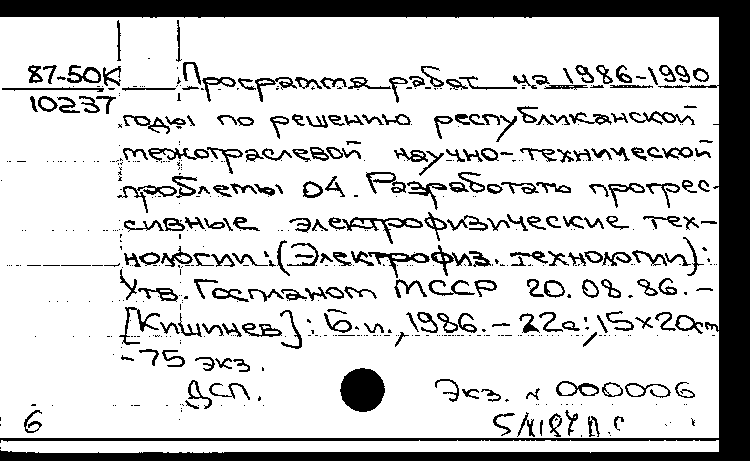 87-50К Программа работ на 1986-1990
10237
годы по решению республиканской
межотраслевой научно-технической
проблемы 04. Разработать прогрес-
сивные электрофизические тех-
нологии: (Электрофиз. технологии):
Утв. Госпланом МССР 20.08.86. -
[Кишинев]: Б.и., 1986. - 22с; 15×20см
-75 экз.
ДСП. Экз. № 000006
6